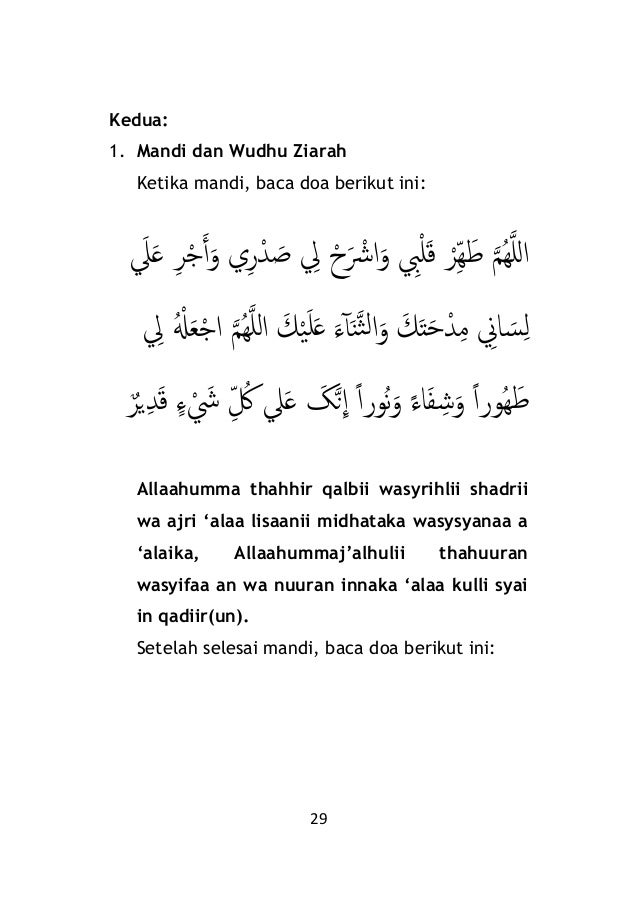 Kedua:
1. Mandi dan Wudhu Ziarah
Ketika mandi, baca doa berikut ini:
اللَّهُمَّ طَهِّرْ قَلْبِي وَاشْرَحْ لِي صَدْرِي وَأَجْرِ عَلَي
لِسَانِي مِدْحَتَكَ وَالثَّنَآءَ عَلَيْكَ اللَّهُمَّ اجْعَلْهُ لِي
طَهُوراً وَشِفَاءً وَنُوراً إِنَّکَ عَلي كُلِّ شَيْءٍ قَدِيرٌ
Allaahumma thahhir qalbii wasyrihlii shadrii
wa ajri ‘alaa lisaanii midhataka wasysyanaa a
‘alaika, Allaahummaj’alhulii thahuuran
wasyifaa an wa nuuran innaka ‘alaa kulli syai
in qadiir(un).
Setelah selesai mandi, baca doa berikut ini:
29